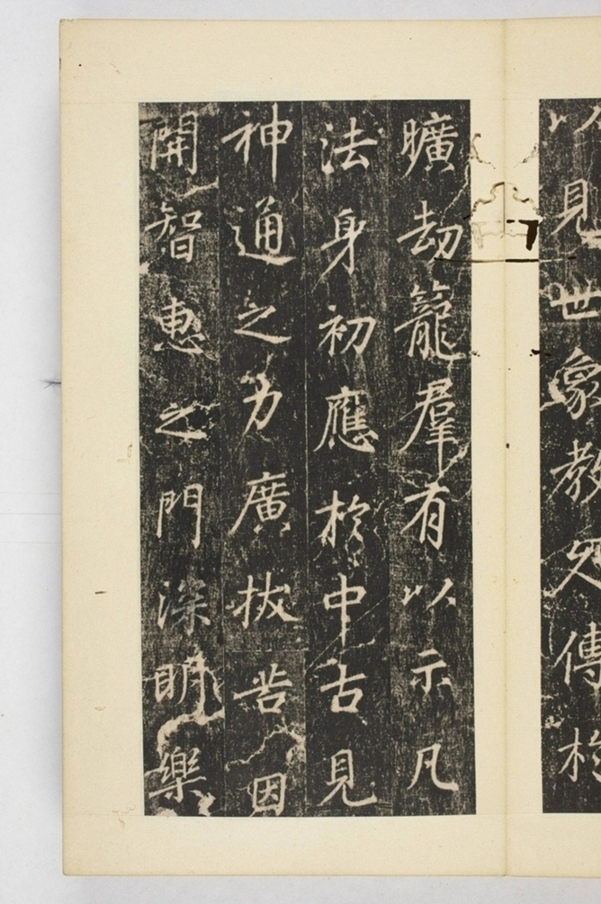 以見世象教久傳於
曠劫籠羣有以示凡
法身初應於中古見
神通之力廣拔苦因
開智惠之門深明樂